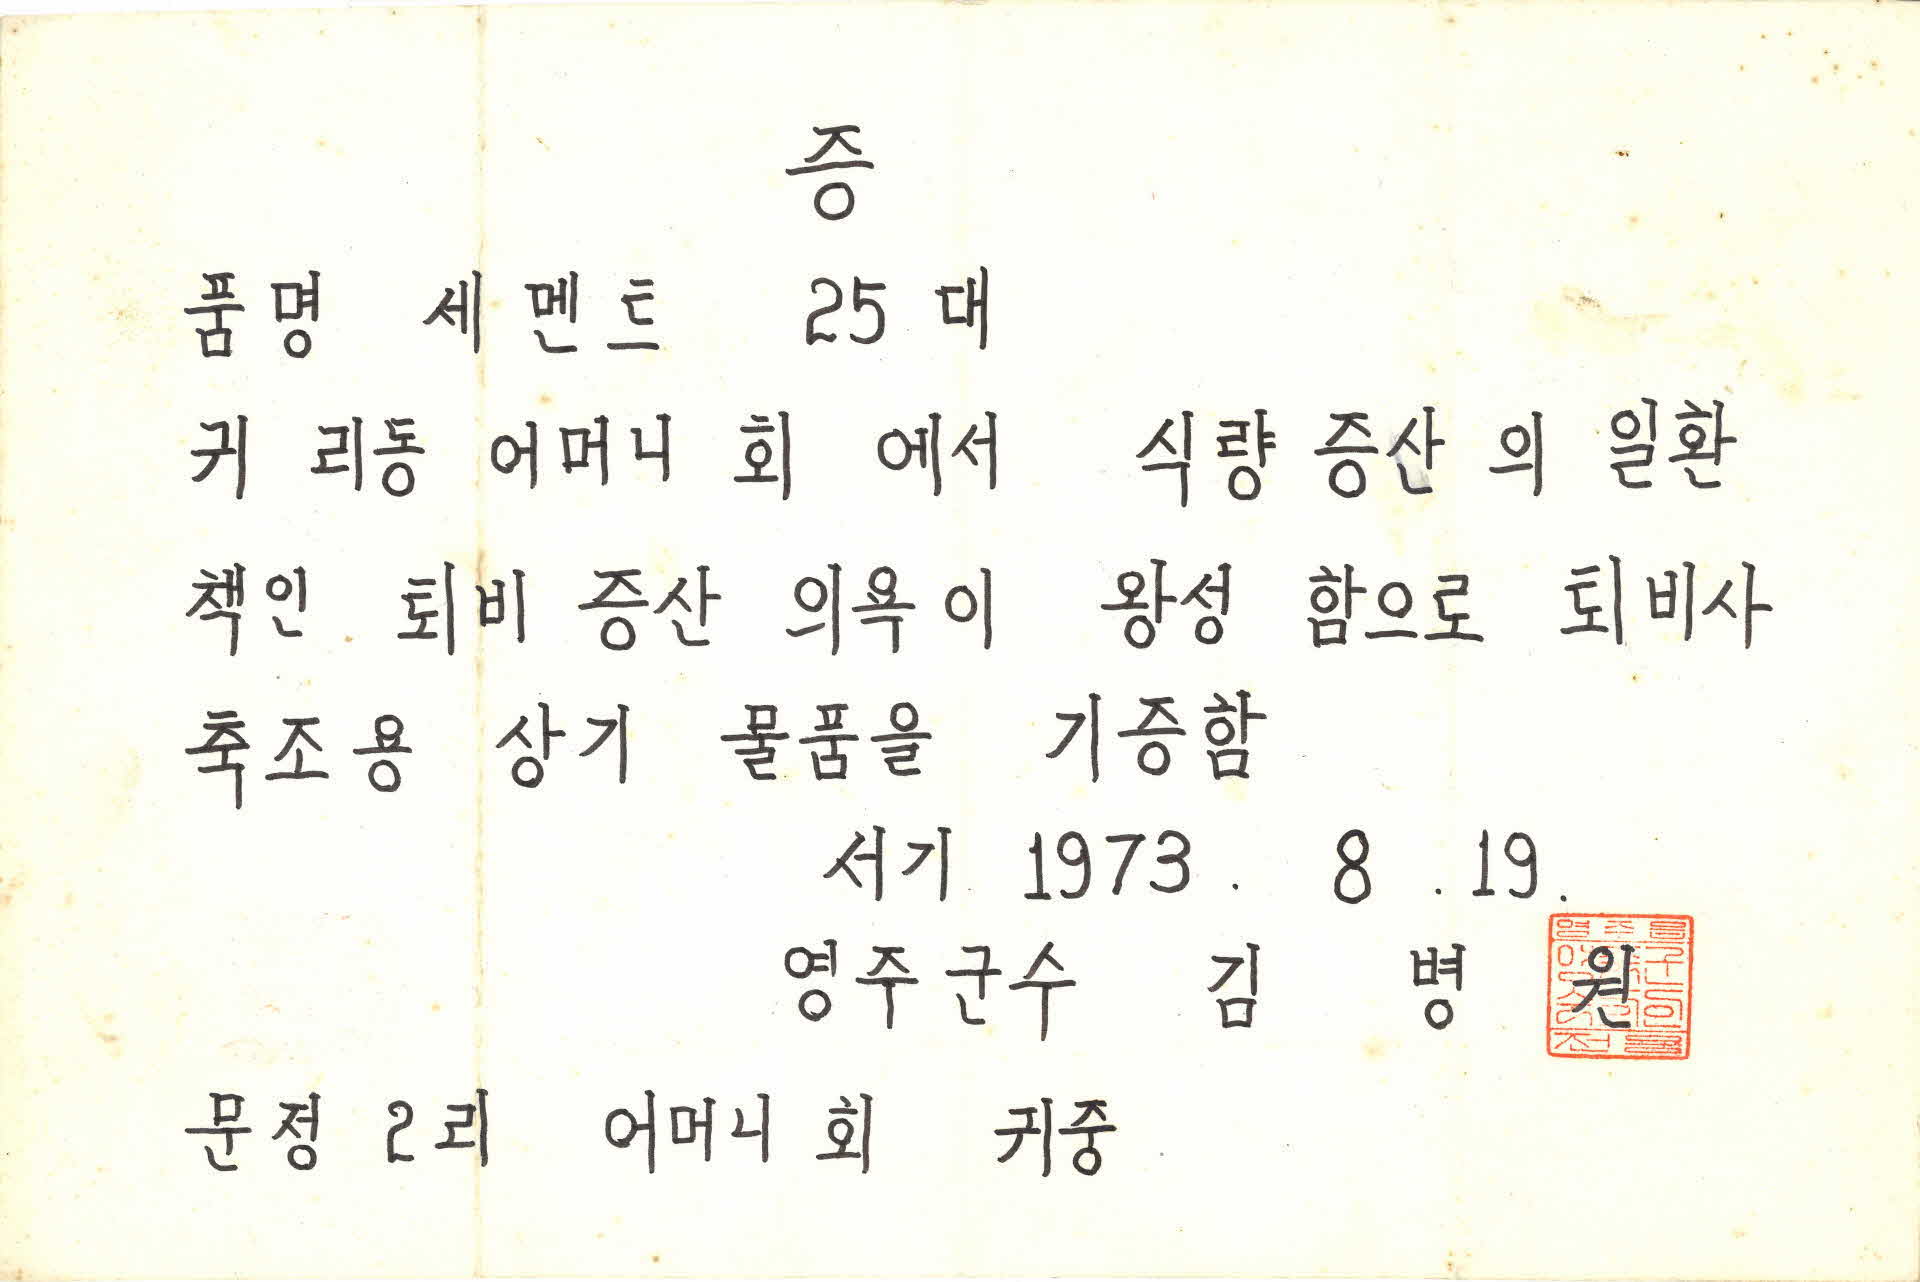 증
품명 세멘트 25 대
귀 리동 어머니 회 에서 식량 증산 의 일환
책인 퇴비 증산 의욕이 왕성 함으로 퇴비사
축조용 상기 물품을 기증함
서기 1973. 8. 19.
영주군수 김 병 원
문정 2리 어머니 회 귀중